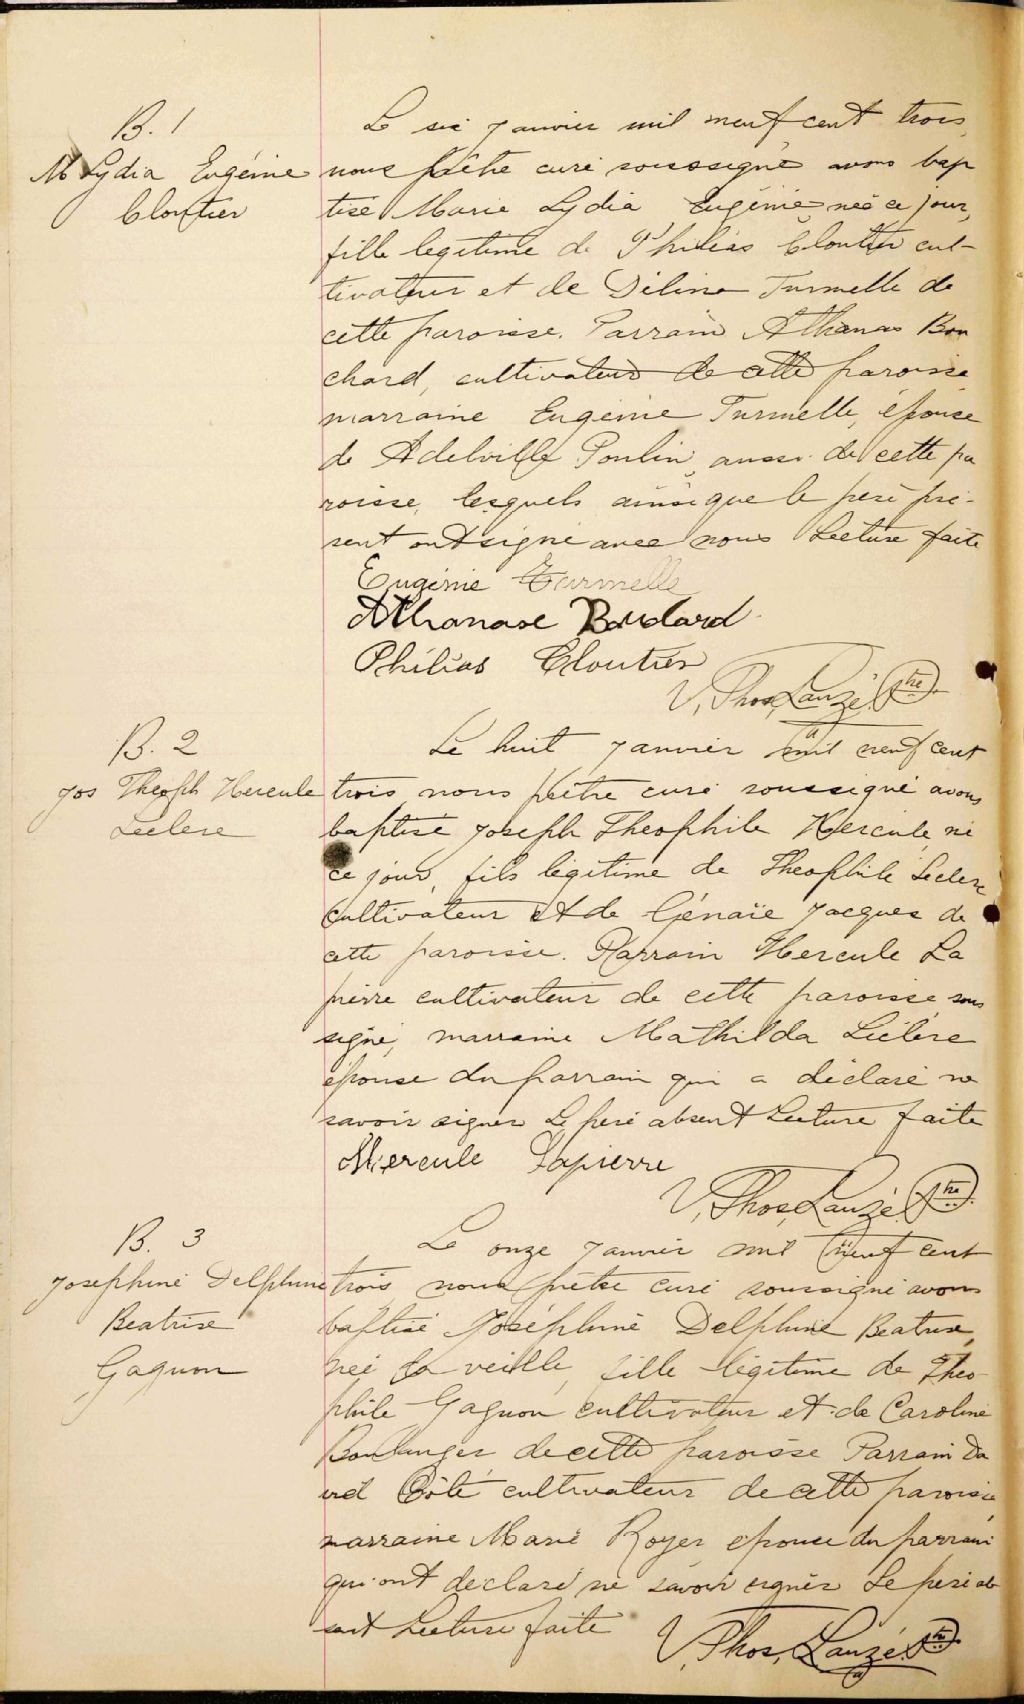 B. 1
M Lydia Eugénie
Cloutier
Le six Janvier mil neuf cent trois,
nous prêtre curé soussigné avons bap
tisé Marie Lydia Eugénie, née ce jour,
fille légitime de Philéas Cloutier cul-
tivateur et de Déline Turmelle de
cette paroisse. Parrain Athanas Bou
chard, cultivateur de cette paroisse
marraine Eugénie Turmelle, épouse
de Adelville Poulin, aussi de cette pa
roisse, lesquels ainsi que le père pré-
sent ont signé avec nous Lecture faite
Eugénie Turmelle
Athanase Bouchard
Philias Cloutier
V. Thos. Lauzé Ptre
B. 2
Jos Theoph Hercule
Leclerc
Le huit Janvier mil neuf cent
trois nous prêtre curé soussigné avons
baptisé Joseph Theophile Hercule, né
ce jour, fils légitime de Theophile Leclerc
cultivateur et de Génaïe Jacques de
cette paroisse. Parrain Hercule La
pierre cultivateur de cette paroisse sous
signé, marraine Mathilda Leclerc
épouse du parrain qui a déclaré ne
savoir signer Le père absent Lecture faite
Hercule Lapierre
V. Thos. Lauzé Ptre
B. 3
Josephine Delphine
Beatrise
Gagnon
Le onze Janvier mil neuf cent
trois, nous prêtre curé soussigné avons
baptisé Joséphine Delphine Beatrise,
née la veille, fille légitime de Theo-
phile Gagnon cultivateur et de Caroline
Boulanger de cette paroisse Parrain Da
vid Côté cultivateur de cette paroisse,
marraine Marie Royer épouse du parrain
qui ont déclaré ne savoir signer Le père ab
sent Lecture faite
V. Thos. Lauzé Ptre